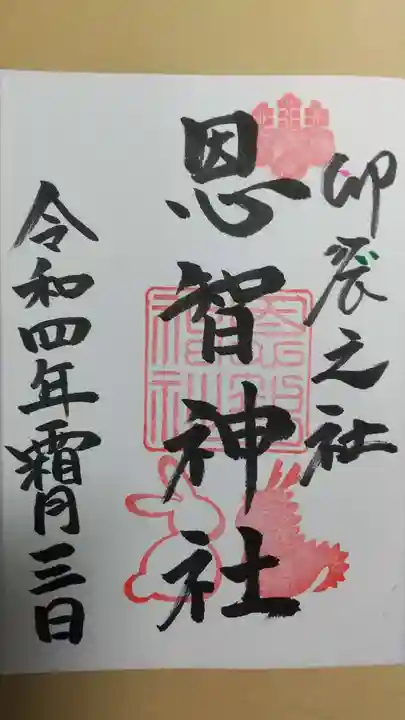 卯辰之社
恩智神社
令和四年霜月三日